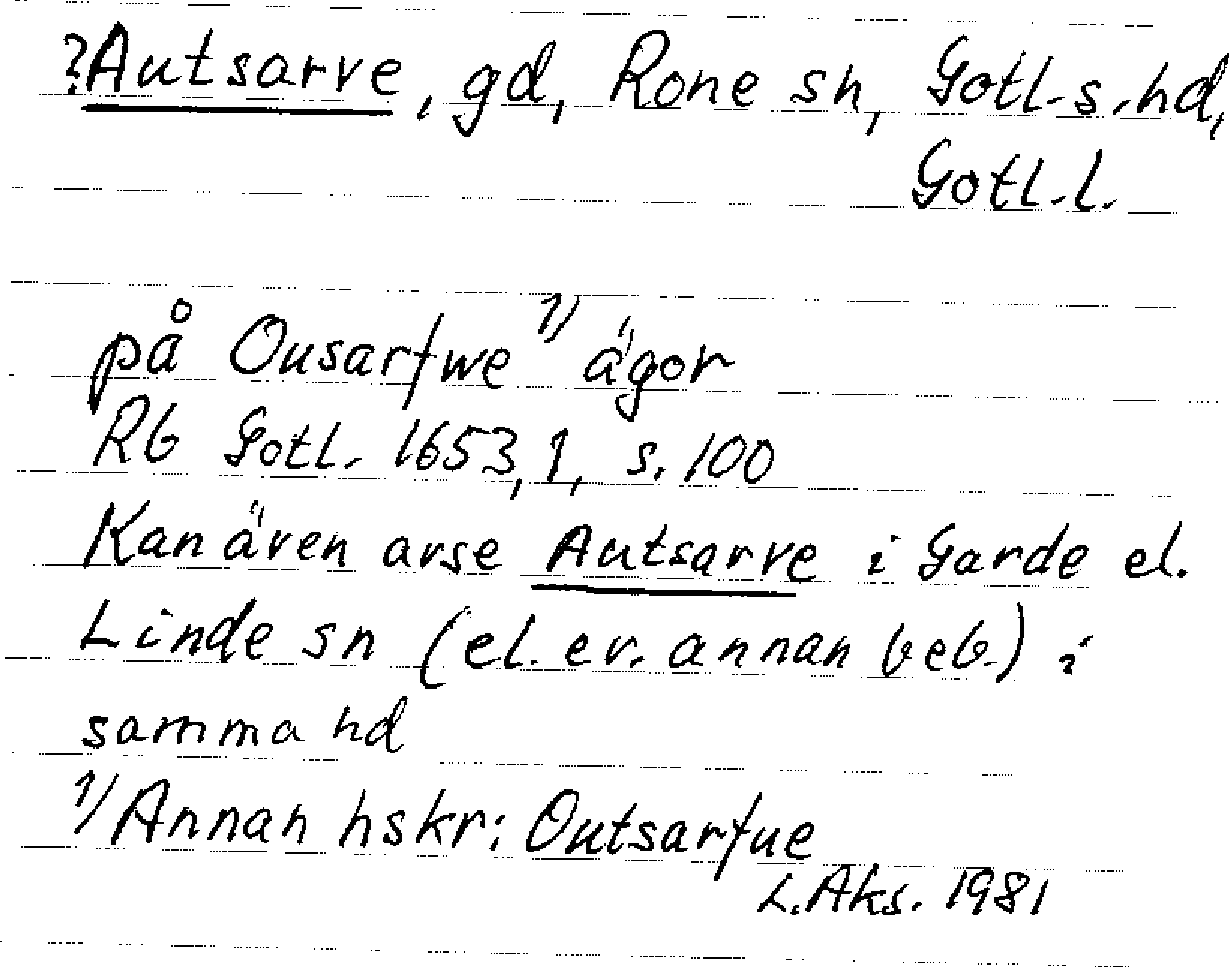 ?Autsarve, gd, Rone sn, Gotl. s. hd,
Gotl. l.
på Ousarfwe 1) ägor
Rb Gotl. 1653, 1, s. 100
Kan även avse Autsarve i Garde el.
Linde sn (el. ev. annan beb.) i
samma hd
1) Annan hskr: Outsarfue
L. Aks. 1981